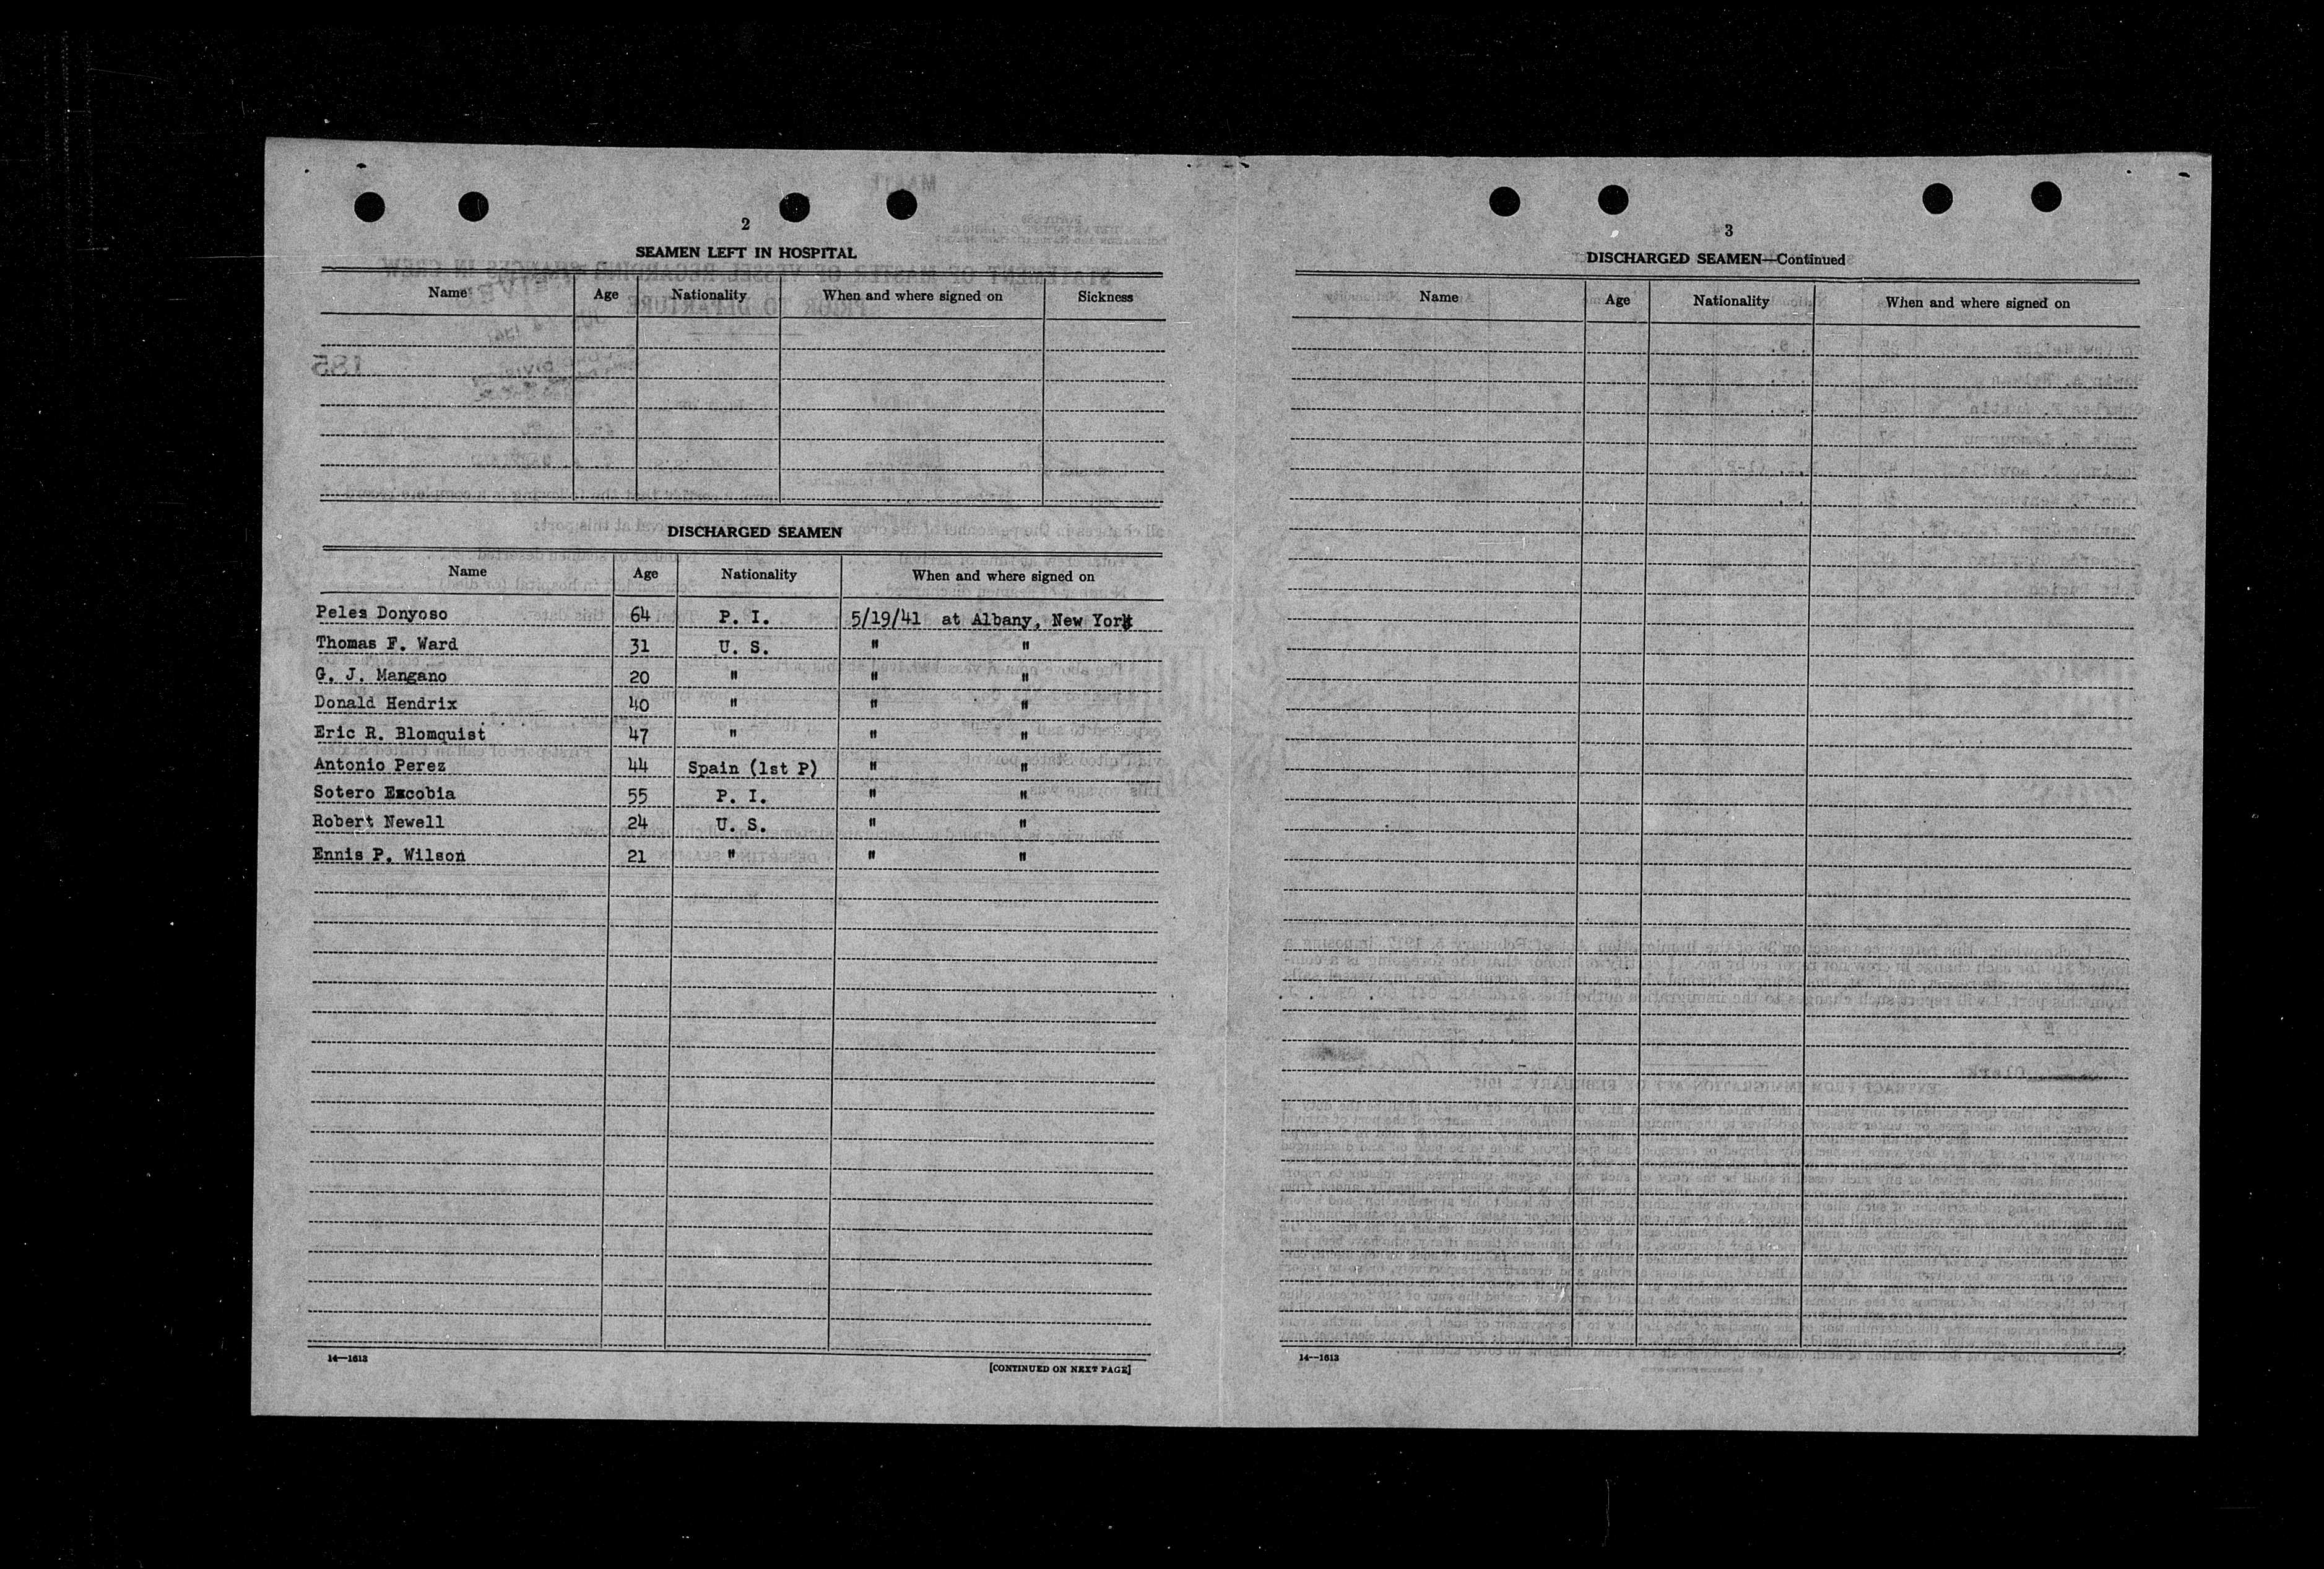 2
SEAMEN LEFT IN HOSPITAL
Name Age Nationality When and where signed on Sickness
DISCHARGED SEAMEN
Name Age Nationality When and where signed on
Peles Donyoso 64 P. I. 5/19/41 at Albany, New York
Thomas F. Ward 31 U. S. " "
G. J. Mangano 20 " " "
Donald Hendrix 40 " " "
Eric R. Blomquist 47 " " "
Antonio Perez 44 Spain (1st P) " "
Sotero Escobia 55 P. I. " "
Robert Newell 24 U. S. " "
Ennis P. Wilson 21 " " "
14—1613
[CONTINUED ON NEXT PAGE]
3
DISCHARGED SEAMEN—Continued
Name Age Nationality When and where signed on
14—1613